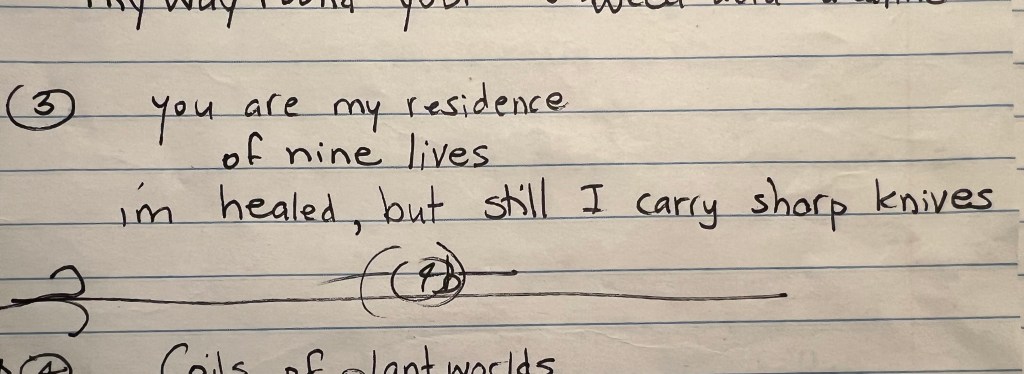 my way round your
(3) you are my residence
of nine lives
i'm healed, but still I carry sharp knives
(4b)
(4) Coils of plant worlds